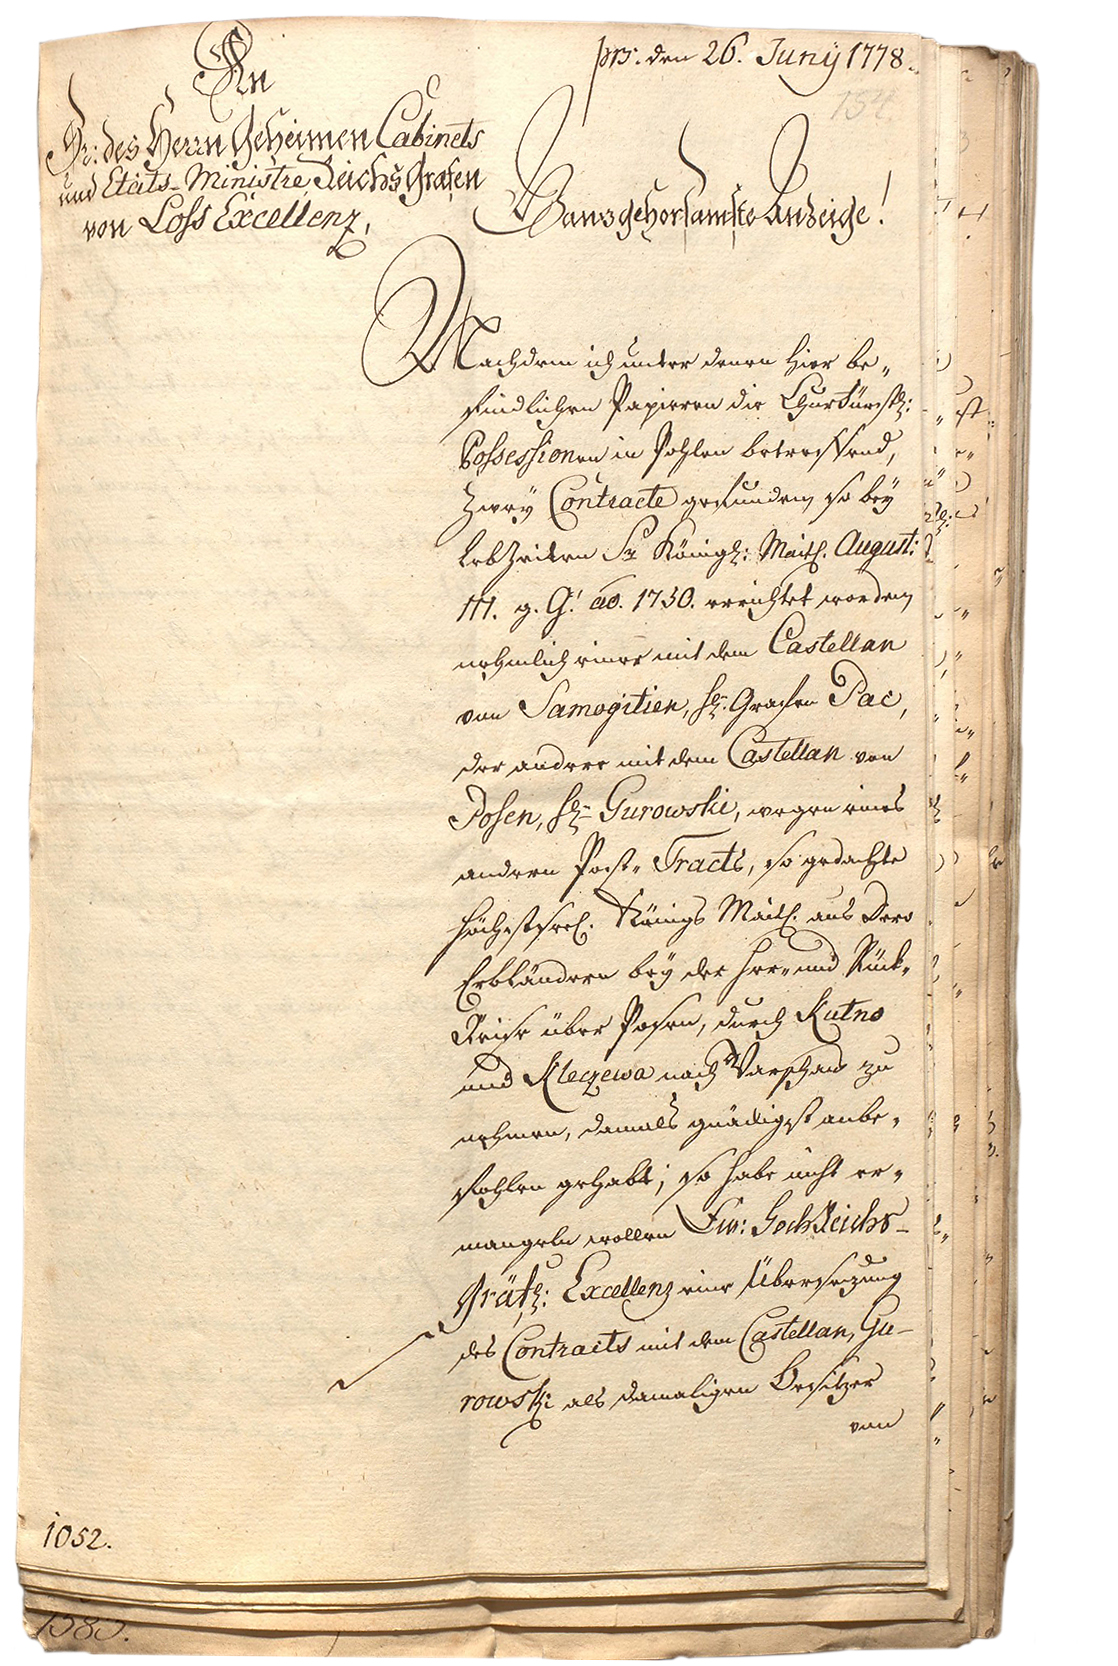 prs: den 26. Juny 1778.
154.
An
Sr: des Herrn Geheimen Cabinets
und Etats-Ministre Reichs Grafen
von Loss Excellenz,
Ganz gehorsamste Anzeige!
Nachdem ich unter denen hier be-
findlichen Papieren die Churfürstl:
Possessionen in Pohlen betreffend,
zwey Contracte gefunden, so bey
Lebzeiten Sr Königl: Maj. August:
III. g. G. ao. 1750. errichtet worden,
nehmlich einer mit dem Castellan
von Samogitien, H. Grafen Pac,
der andere mit dem Castellan von
Posen, H. Gurowski, wegen eines
andern Post-Tracts, so gedachte
Höchstseel. Königs Maj. aus Dero
Erbländern bey der Her- und Rück-
Reise über Posen, durch Kutno
und Kleczewa nach Warschau zu
nehmen, damals gnädigst anbe-
fohlen gehabt; so habe nicht er-
mangeln wollen Ew: HochReichs-
Gräfl: Excellenz eine Übersezung
des Contracts mit dem Castellan, Gu-
rowski als damaligen Besitzer
von
1052.